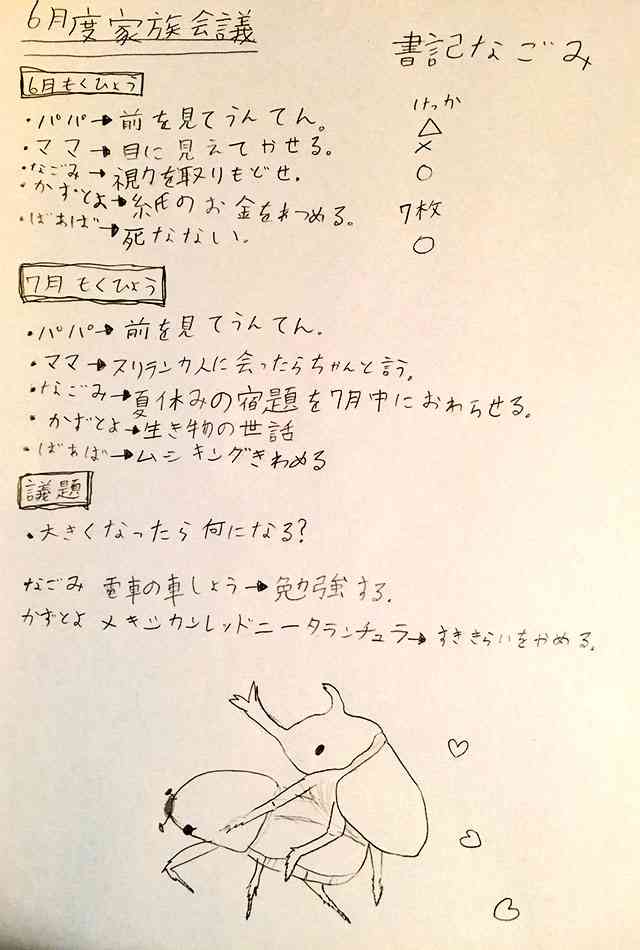 6月度家族会議
書記なごみ
6月もくひょう
けっか
・パパ→前を見てうんてん。 △
・ママ→目に見えてやせる。 ×
・なごみ→視力を取りもどせ. ○
・かずとよ→糸氏のお金をあつめる。 7枚
・ばあば→死なない. ○
7月もくひょう
・パパ→前を見てうんてん.
・ママ→スリランカ人に会ったらちゃんと言う。
・なごみ→夏休みの宿題を7月中におわらせる。
・かずとよ→生き物の世話
・ばあば→ムシキングきわめる
議題
・大きくなったら何になる?
なごみ 電車の車しょう→勉強する.
かずとよ メキシカンレッドニータランチュラ→すききらいをやめる。